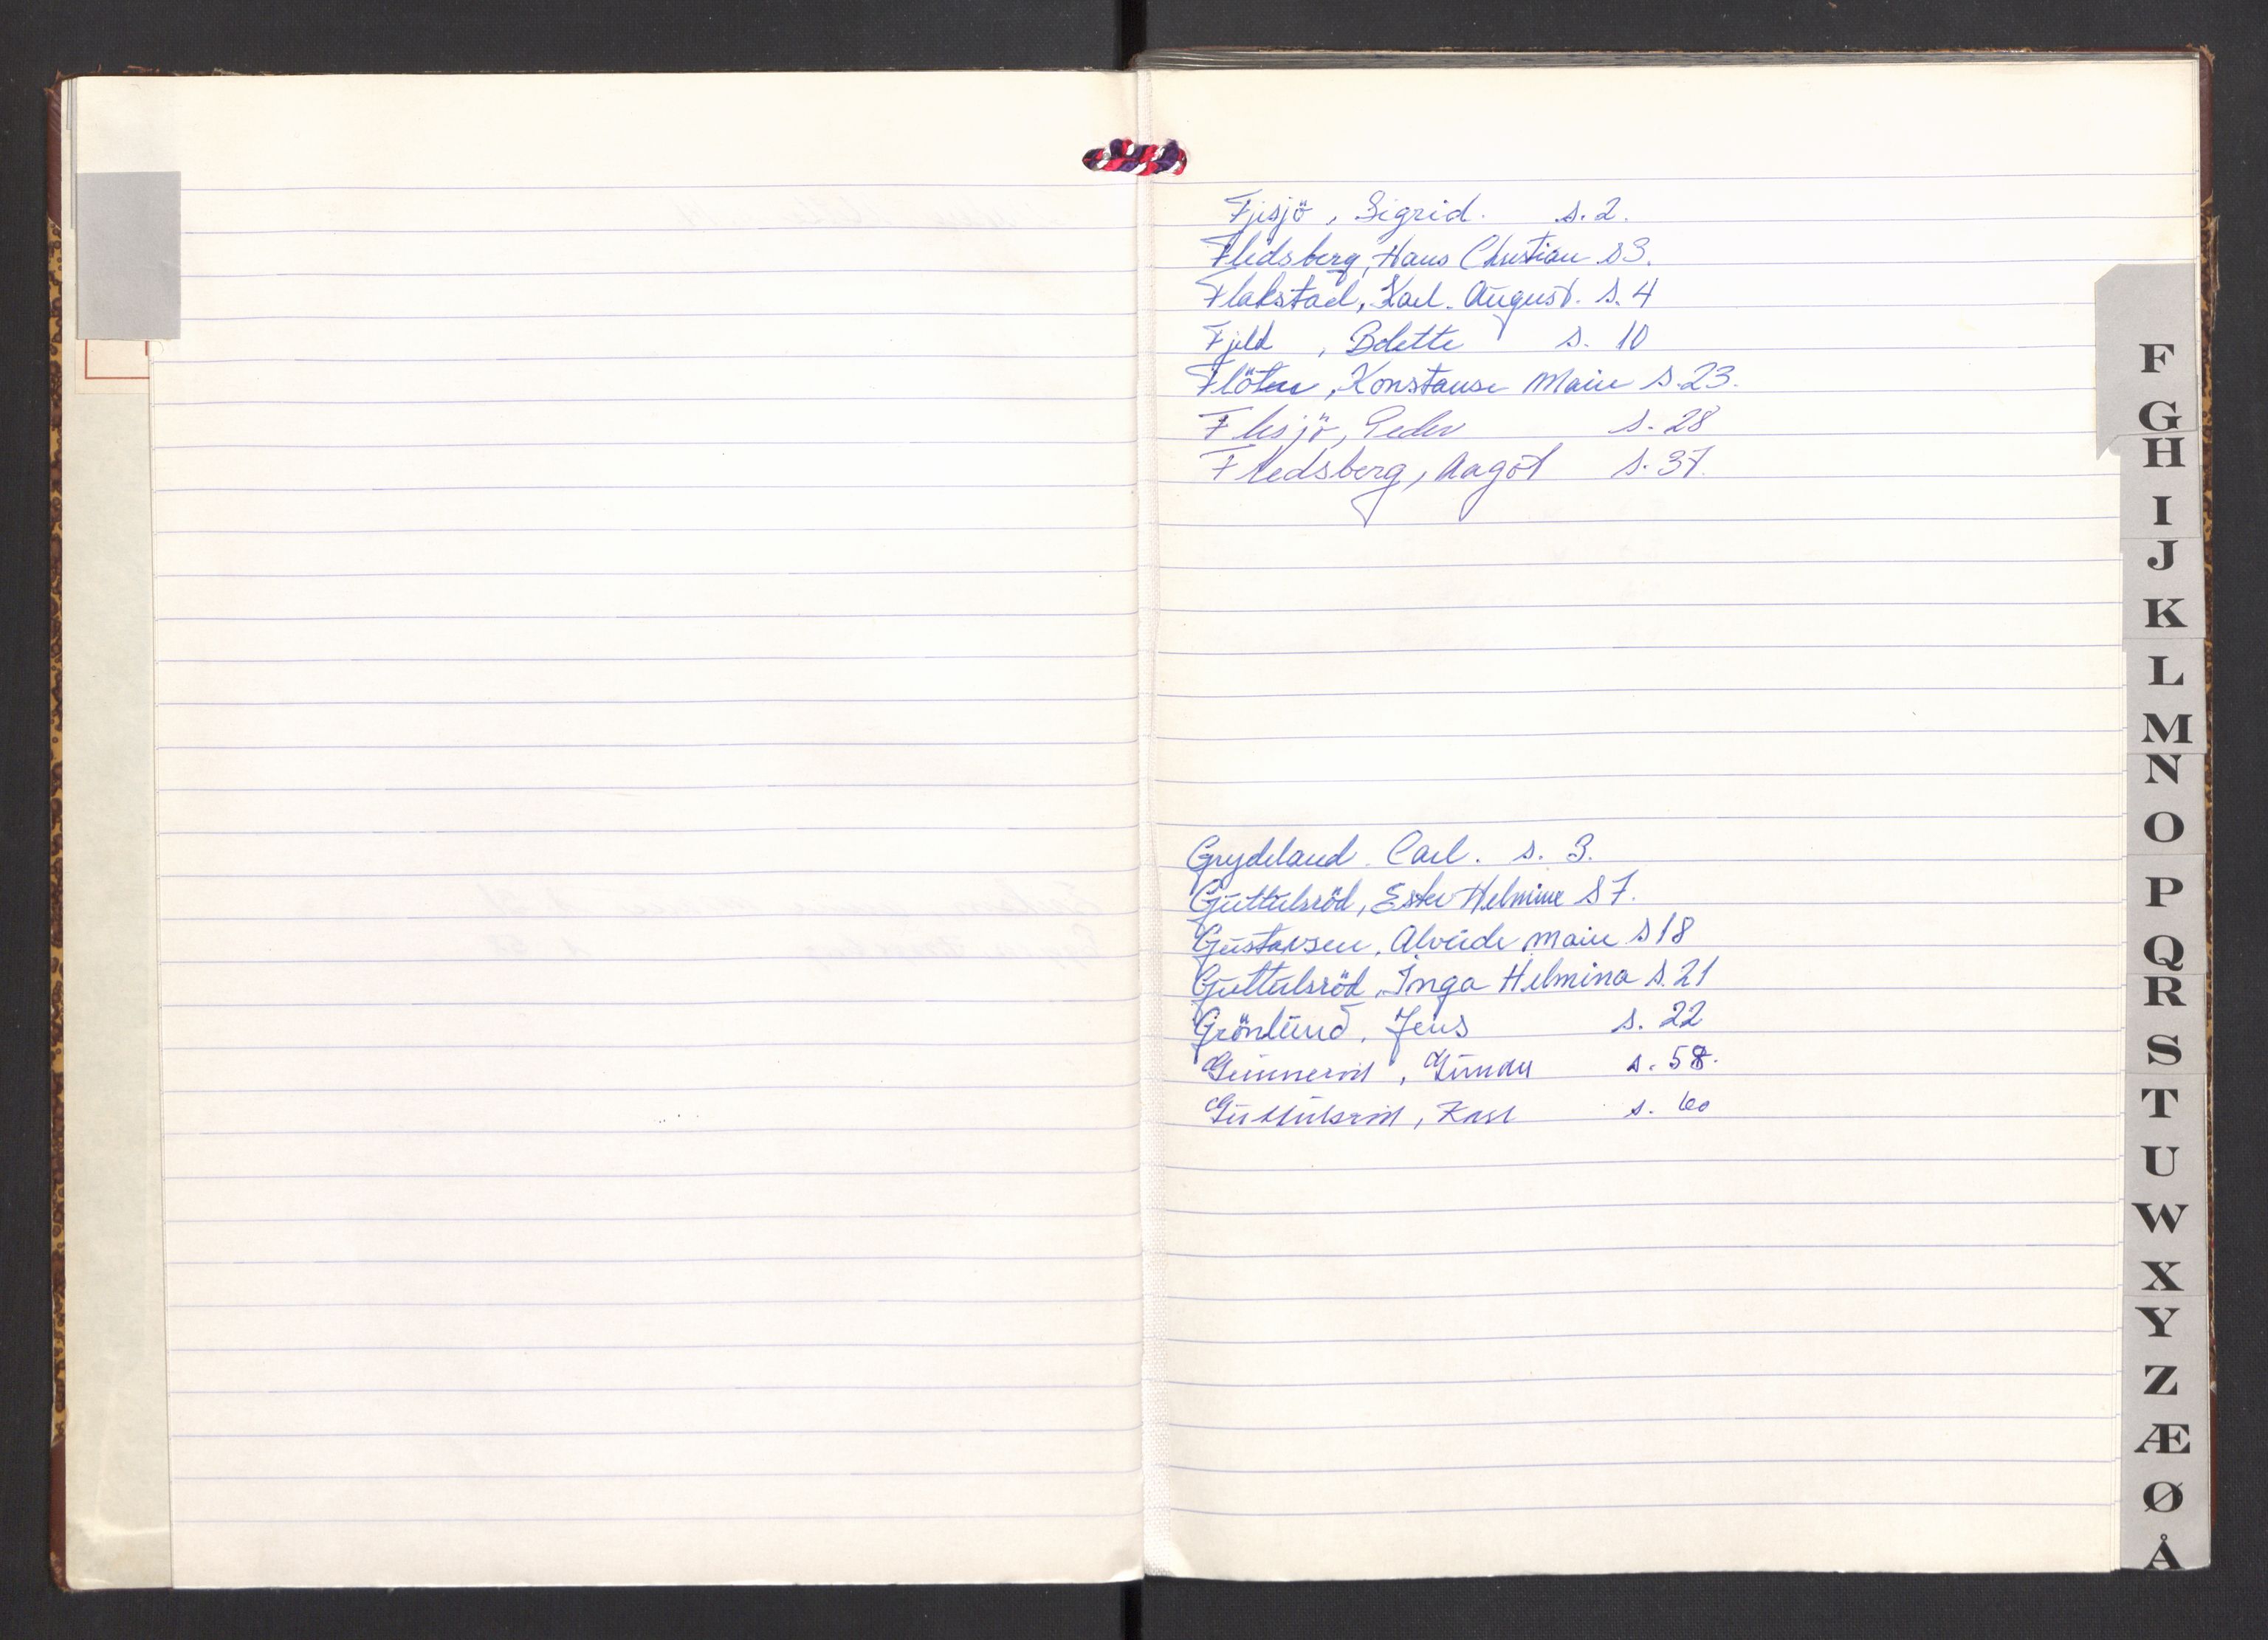 Fjesjö, Sigrid. s. 2.
Fledsberg, Hans Christian s 3.
Flakstad, Karl. August. s. 4
Fjeld , Bolette s. 10
Flöten, Konstanse Marie s. 23.
Flesjö, Peder s. 28
Fledsberg, Aagot s. 37.
Grydeland. Carl. s. 3.
Guttulsröd, Ester Helmine s 7.
Gustavsen, Alvide Marie s 18
Guttulsröd, Inga Helmina s. 21
Grönlund, Jens s. 22
Gunneröd, Gunda s. 58.
Guttulsröd, Karl s. 60
F
G
H
I
J
K
L
M
N
O
P
Q
R
S
T
U
W
X
Y
Z
Æ
Ø
Å